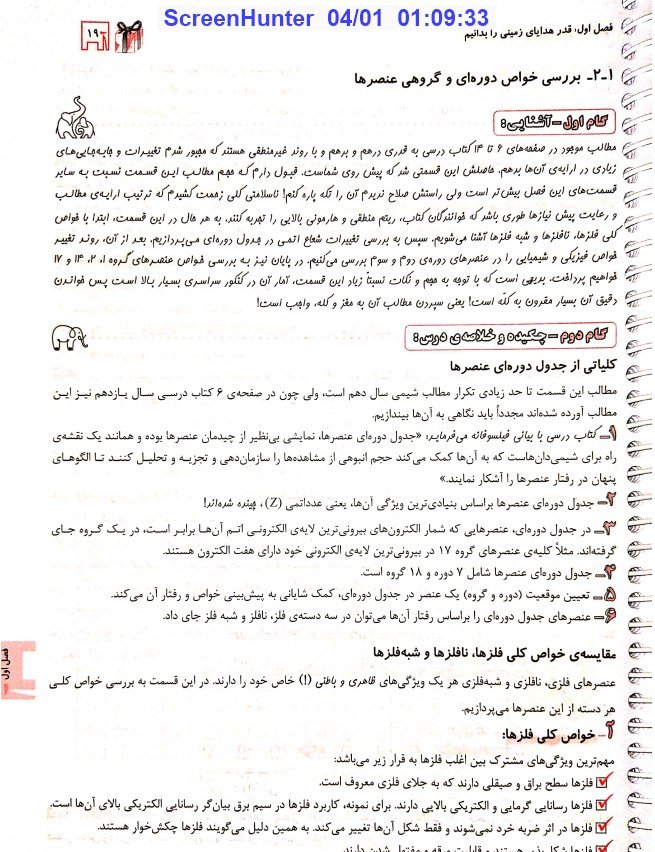 ScreenHunter 04/01 01:09:33
فصل اول: قدر هدایای زمینی را بدانیم
۱۹
۱-۲- بررسی خواص دوره‌ای و گروهی عنصرها
گام اول - آشنایی:
مطالب موجود در صفحه‌های ۶ تا ۱۴ کتاب درسی به قدری درهم و برهم و با روند غیرمنطقی هستند که مجبور شدم تغییرات و جابه‌جایی‌های
زیادی در ارایه‌ی آن‌ها بدهم. حاصلش این قسمتی شد که پیش روی شماست. قبول دارم که حجم مطالب این قسمت نسبت به سایر
قسمت‌های این فصل بیش‌تر است ولی راستش صلاح ندیدم آن را تکه پاره کنم! ناسلامتی کلی زحمت کشیدم که ترتیب ارایه‌ی مطالب
و رعایت پیش نیازها طوری باشد که خوانندگان کتاب، ریتم منطقی و هارمونی بالایی را تجربه کنند. به هر حال در این قسمت، ابتدا با خواص
کلی فلزها، نافلزها و شبه فلزها آشنا می‌شویم. سپس به بررسی تغییرات شعاع اتمی در جدول دوره‌ای می‌پردازیم. بعد از آن، روند تغییر
خواص فیزیکی و شیمیایی را در عنصرهای دوره‌ی دوم و سوم بررسی می‌کنیم. در پایان نیز به بررسی خواص عنصرهای گروه ۱، ۲، ۱۴ و ۱۷
خواهیم پرداخت. بدیهی است که با توجه به حجم و نکات نسبتاً زیاد این قسمت، آمار آن در کنکور سراسری بسیار بالا است پس خواندن
دقیق آن بسیار مقرون به کلّه است! یعنی سپردن مطالب آن به مغز و کله، واجب است!
گام دوم - چکیده و خلاصه‌ی درس:
کلیاتی از جدول دوره‌ای عنصرها
مطالب این قسمت تا حد زیادی تکرار مطالب شیمی سال دهم است، ولی چون در صفحه‌ی ۶ کتاب درسی سال یازدهم نیز این
مطالب آورده شده‌اند مجدداً باید نگاهی به آن‌ها بیندازیم.
۱- کتاب درسی با بیانی فیلسوفانه می‌فرماید: «جدول دوره‌ای عنصرها، نمایشی بی‌نظیر از چیدمان عنصرها بوده و همانند یک نقشه‌ی
راه برای شیمی‌دان‌هاست که به آن‌ها کمک می‌کند حجم انبوهی از مشاهده‌ها را سازمان‌دهی و تجزیه و تحلیل کنند تا الگوهای
پنهان در رفتار عنصرها را آشکار نمایند.»
۲- جدول دوره‌ای عنصرها براساس بنیادی‌ترین ویژگی آن‌ها، یعنی عدداتمی (Z)، چیده شده‌اند!
۳- در جدول دوره‌ای، عنصرهایی که شمار الکترون‌های بیرونی‌ترین لایه‌ی الکترونی اتم آن‌ها برابر است، در یک گروه جای
گرفته‌اند. مثلاً کلیه‌ی عنصرهای گروه ۱۷ در بیرونی‌ترین لایه‌ی الکترونی خود دارای هفت الکترون هستند.
۴- جدول دوره‌ای عنصرها شامل ۷ دوره و ۱۸ گروه است.
۵- تعیین موقعیت (دوره و گروه) یک عنصر در جدول دوره‌ای، کمک شایانی به پیش‌بینی خواص و رفتار آن می‌کند.
۶- عنصرهای جدول دوره‌ای را براساس رفتار آن‌ها می‌توان در سه دسته‌ی فلز، نافلز و شبه فلز جای داد.
فصل اول
مقایسه‌ی خواص کلی فلزها، نافلزها و شبه‌فلزها
عنصرهای فلزی، نافلزی و شبه‌فلزی هر یک ویژگی‌های ظاهری و باطنی (!) خاص خود را دارند. در این قسمت به بررسی خواص کلی
هر دسته از این عنصرها می‌پردازیم.
آ- خواص کلی فلزها:
مهم‌ترین ویژگی‌های مشترک بین اغلب فلزها به قرار زیر می‌باشد:
فلزها سطح براق و صیقلی دارند که به جلای فلزی معروف است.
فلزها رسانایی گرمایی و الکتریکی بالایی دارند. برای نمونه، کاربرد فلزها در سیم برق بیان‌گر رسانایی الکتریکی بالای آن‌ها است.
فلزها در اثر ضربه خرد نمی‌شوند و فقط شکل آن‌ها تغییر می‌کند. به همین دلیل می‌گویند فلزها چکش‌خوار هستند.
فلزها شکل‌پذیر هستند و قابلیت ورقه و مفتول شدن دارند.